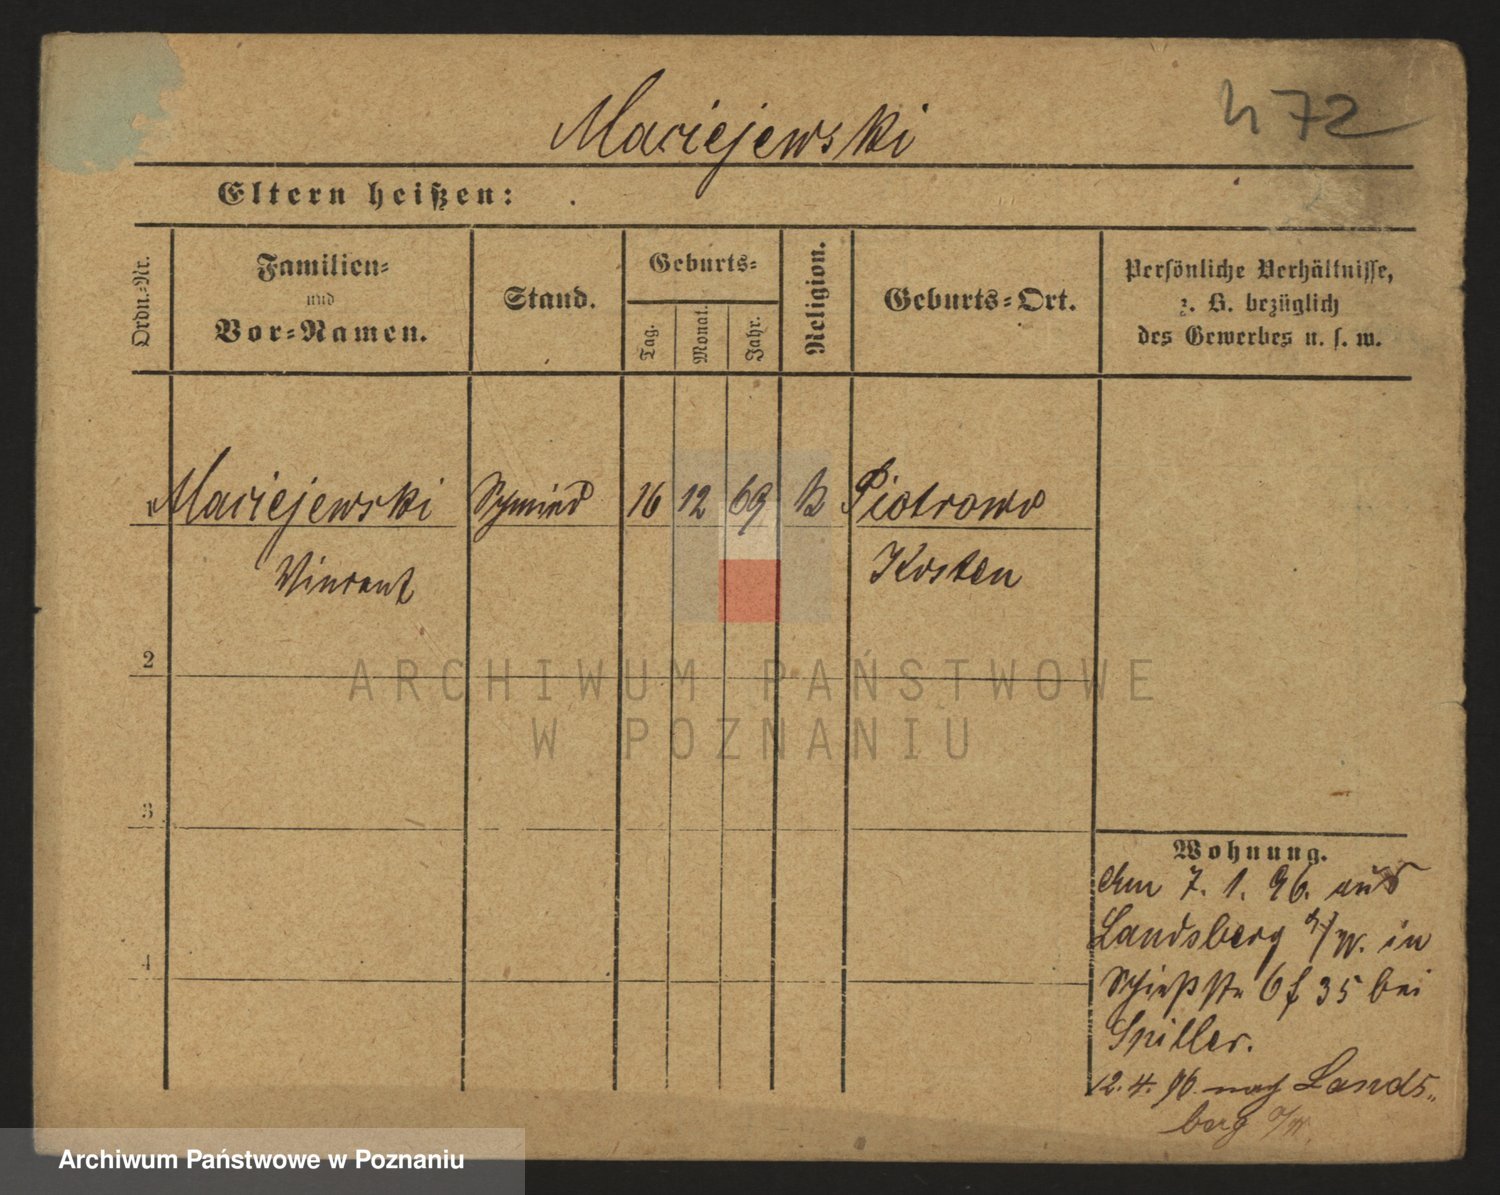 Maciejewski
472
Eltern heißen:
Ordn.-Nr.
Familien-
und
Vor-Namen.
Stand.
Geburts-
Tag.
Monat.
Jahr.
Religion.
Geburts-Ort.
Persönliche Verhältnisse,
z. B. bezüglich
des Gewerbes u. s. w.
Maciejewski Schmied 16 12 69 Piotrowo
Vincent Kosten
2
3
4
Wohnung.
Am 7. 1. 96. aus
Landsberg a/W. in
Schießstr 6 f 35 bei
Spitler.
12. 4. 96. nach Lands-
berg a/W.
ARCHIWUM PAŃSTWOWE
W POZNANIU
Archiwum Państwowe w Poznaniu